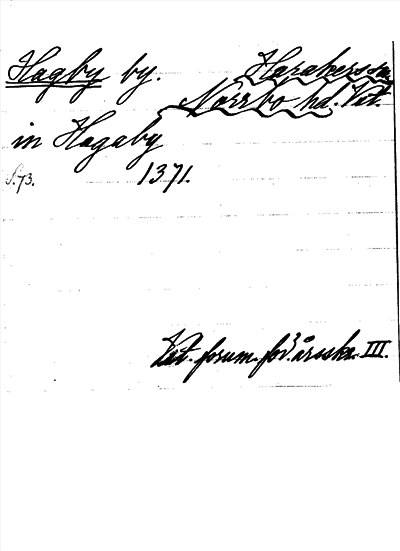 Hagby by. Harakers sn
Norrbo hd. Vstl.
in Hagaby
S. 73. 1371.
Vst. fornm. för. årsskr. III.